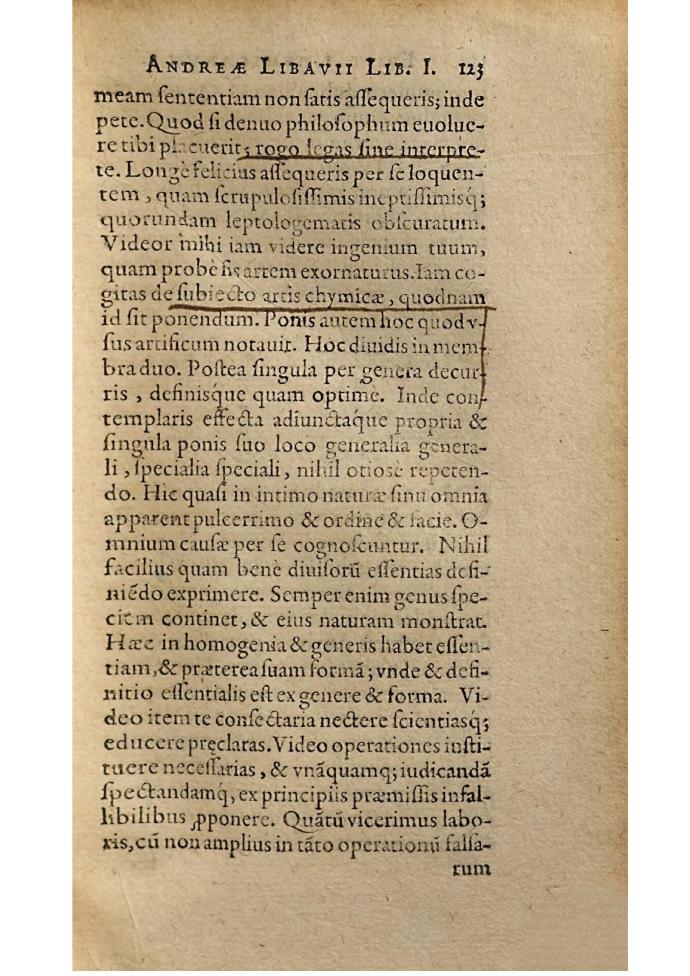 ANDREÆ LIBAVII LIB. I. 123
meam ſententiam non ſatis aſſequeris; inde
pete. Quod ſi denuo philoſophum euolue-
re tibi placuerit; rogo legas ſine interpre-
te. Longè felicius aſſequeris per ſe loquen-
tem, quam ſcrupuloſiſſimis ineptiſſimisq́;
quorundam leptologematis obſcuratum.
Videor mihi iam videre ingenium tuum,
quam probè ſis artem exornaturus. Iam co-
gitas de ſubiecto artis chymicæ, quodnam
id ſit ponendum. Ponis autem hoc quod v-
ſus artificum notauit. Hoc diuidis in mem-
bra duo. Poſtea ſingula per genera decur-
ris, definisque quam optimè. Inde con-
templaris effecta adiunctaque propria &
ſingula ponis ſuo loco generalia genera-
li, ſpecialia ſpeciali, nihil otiosè repeten-
do. Hic quaſi in intimo naturæ ſinu omnia
apparent pulcerrimo & ordine & facie. O-
mnium cauſæ per ſe cognoſcuntur. Nihil
facilius quam benè diuiſorū eſſentias defi-
niēdo exprimere. Semper enim genus ſpe-
ciem continet, & eius naturam monſtrat.
Hæc in homogenia & generis habet eſſen-
tiam, & præterea ſuam formā; vnde & defi-
nitio eſſentialis eſt ex genere & forma. Vi-
deo item te conſectaria nectere ſcientiasq́;
educere pręclaras. Video operationes inſti-
tuere neceſſarias, & vnāquamq; iudicandā
ſpectandamq́, ex principiis præmiſſis infal-
libilibus ꝓponere. Quātū vicerimus labo-
ris, cū non amplius in tāto operationū falſa-
rum